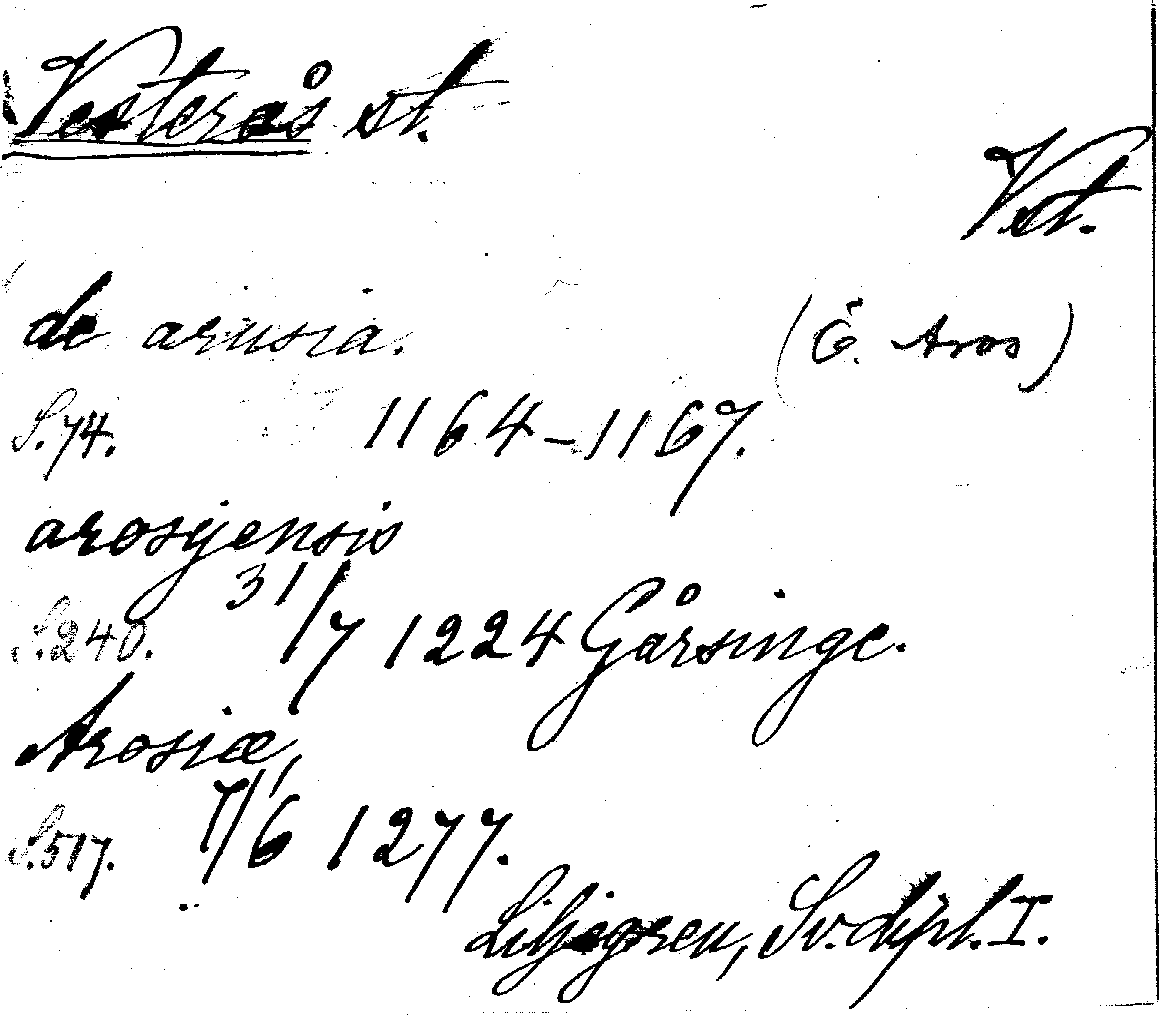 Vesterås st.
Vst.
de arusia. (Ö. Aros)
S. 74. 1164-1167.
arosyensis
S. 240. 31/7 1224 Gårsinge.
Arosiæ,
S. 517. 7/6 1277.
Liljegren, Sv. dipl. I.